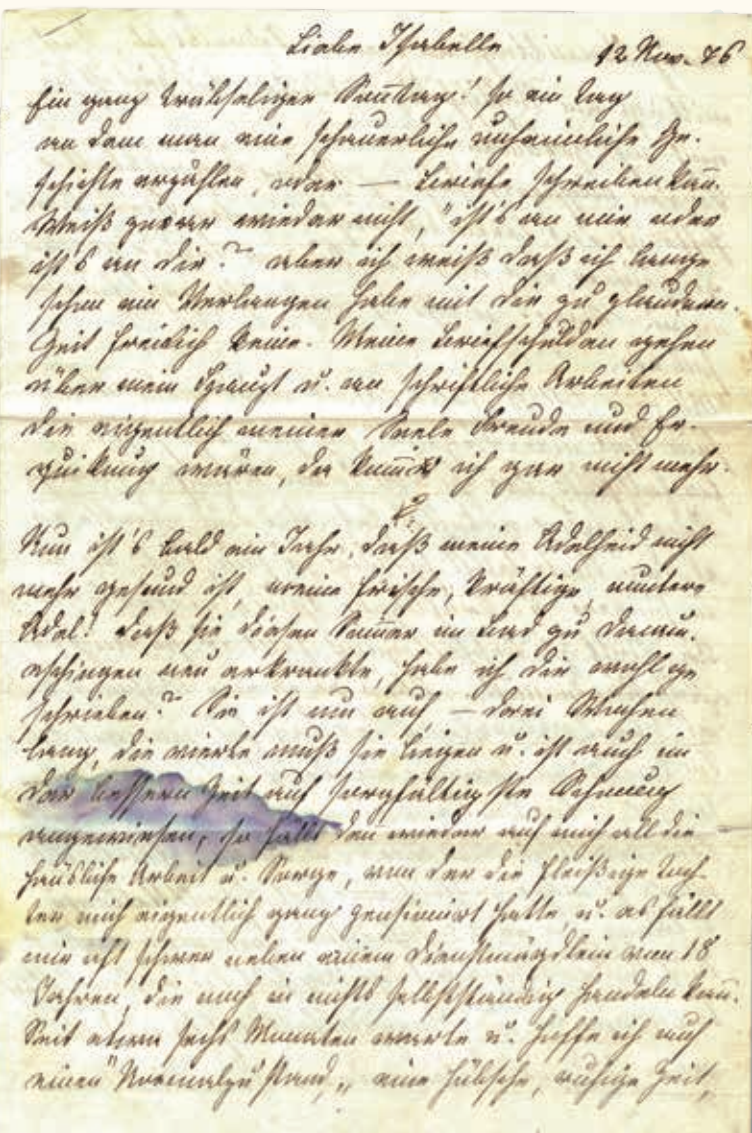 Liebe Isabelle 12 Nov. 76
Ein ganz trübseliger Sonntag! so ein Tag
an dem man eine schauerliche unheimliche Ge-
schichte erzählen, oder — Briefe schreiben kan̄.
Weiß zwar wieder nicht, "ist's an mir oder
ist's an dir?" aber ich weiß daß ich lange
schon ein Verlangen habe mit dir zu plaudern.
Zeit freilich keine. Meine Briefschulden gehen
über mein Haupt u. an schriftliche Arbeiten
die eigentlich meiner Seele Freude und Er-
quickung wären, da kom̄e ich gar nicht mehr.
Nun ist's bald ein Jahr, daß meine Adelheid nicht
mehr gesund ist, meine frische, kräftige, muntere
Adel! daß sie diesen Som̄er im Bad zu Donau-
eschingen neu erkrankte, habe ich dir wohl ge
schrieben? Sie ist nun auf — drei Wochen
lang, die vierte muß sie liegen u. ist auch in
der bessern Zeit auf sorgfältigste Schonung
angewiesen, so fällt den wieder auf mich all die
häusliche Arbeit u. Sorge, von der die fleißige Toch-
ter mich eigentlich ganz pensionirt hatte, u. es fällt
mir oft schwer neben einem Dienstmägdlein von 18
Jahren, die noch in nichts selbstständig handeln kan̄.
Seit etwa sechs Monaten warte u. hoffe ich auf
einen "Normalzustand„ eine hübsche, ruhige Zeit,